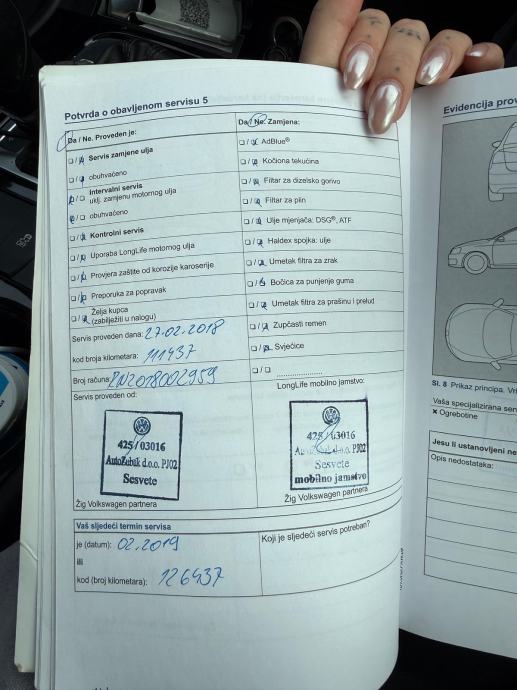 Potvrda o obavljenom servisu 5
Da / Ne. Proveden je:
Servis zamjene ulja
obuhvaćeno
Intervalni servis
uklj. zamjenu motornog ulja
obuhvaćeno
Kontrolni servis
Uporaba LongLife motornog ulja
Provjera zaštite od korozije karoserije
Preporuka za popravak
Želja kupca
(zabilježiti u nalogu)
Servis proveden dana: 27.02.2018
kod broja kilometara: 111437
Broj računa: PN2018002959
Servis proveden od:
425/03016
AutoZubak d.o.o. PJ02
Sesvete
Žig Volkswagen partnera
Da / Ne: Zamjena:
AdBlue®
Kočiona tekućina
Filtar za dizelsko gorivo
Filtar za plin
Ulje mjenjača: DSG®, ATF
Haldex spojka: ulje
Umetak filtra za zrak
Bočica za punjenje guma
Umetak filtra za prašinu i pelud
Zupčasti remen
Svjećice
LongLife mobilno jamstvo:
425/03016
AutoZubak d.o.o. PJ02
Sesvete
mobilno jamstvo
Žig Volkswagen partnera
Vaš sljedeći termin servisa
je (datum): 02.2019
ili
kod (broj kilometara): 126437
Koji je sljedeći servis potreban?
Evidencija prov
Sl. 8 Prikaz principa. Vrl
Vaša specijalizirana ser
× Ogrebotine
Jesu li ustanovljeni ne
Opis nedostataka: